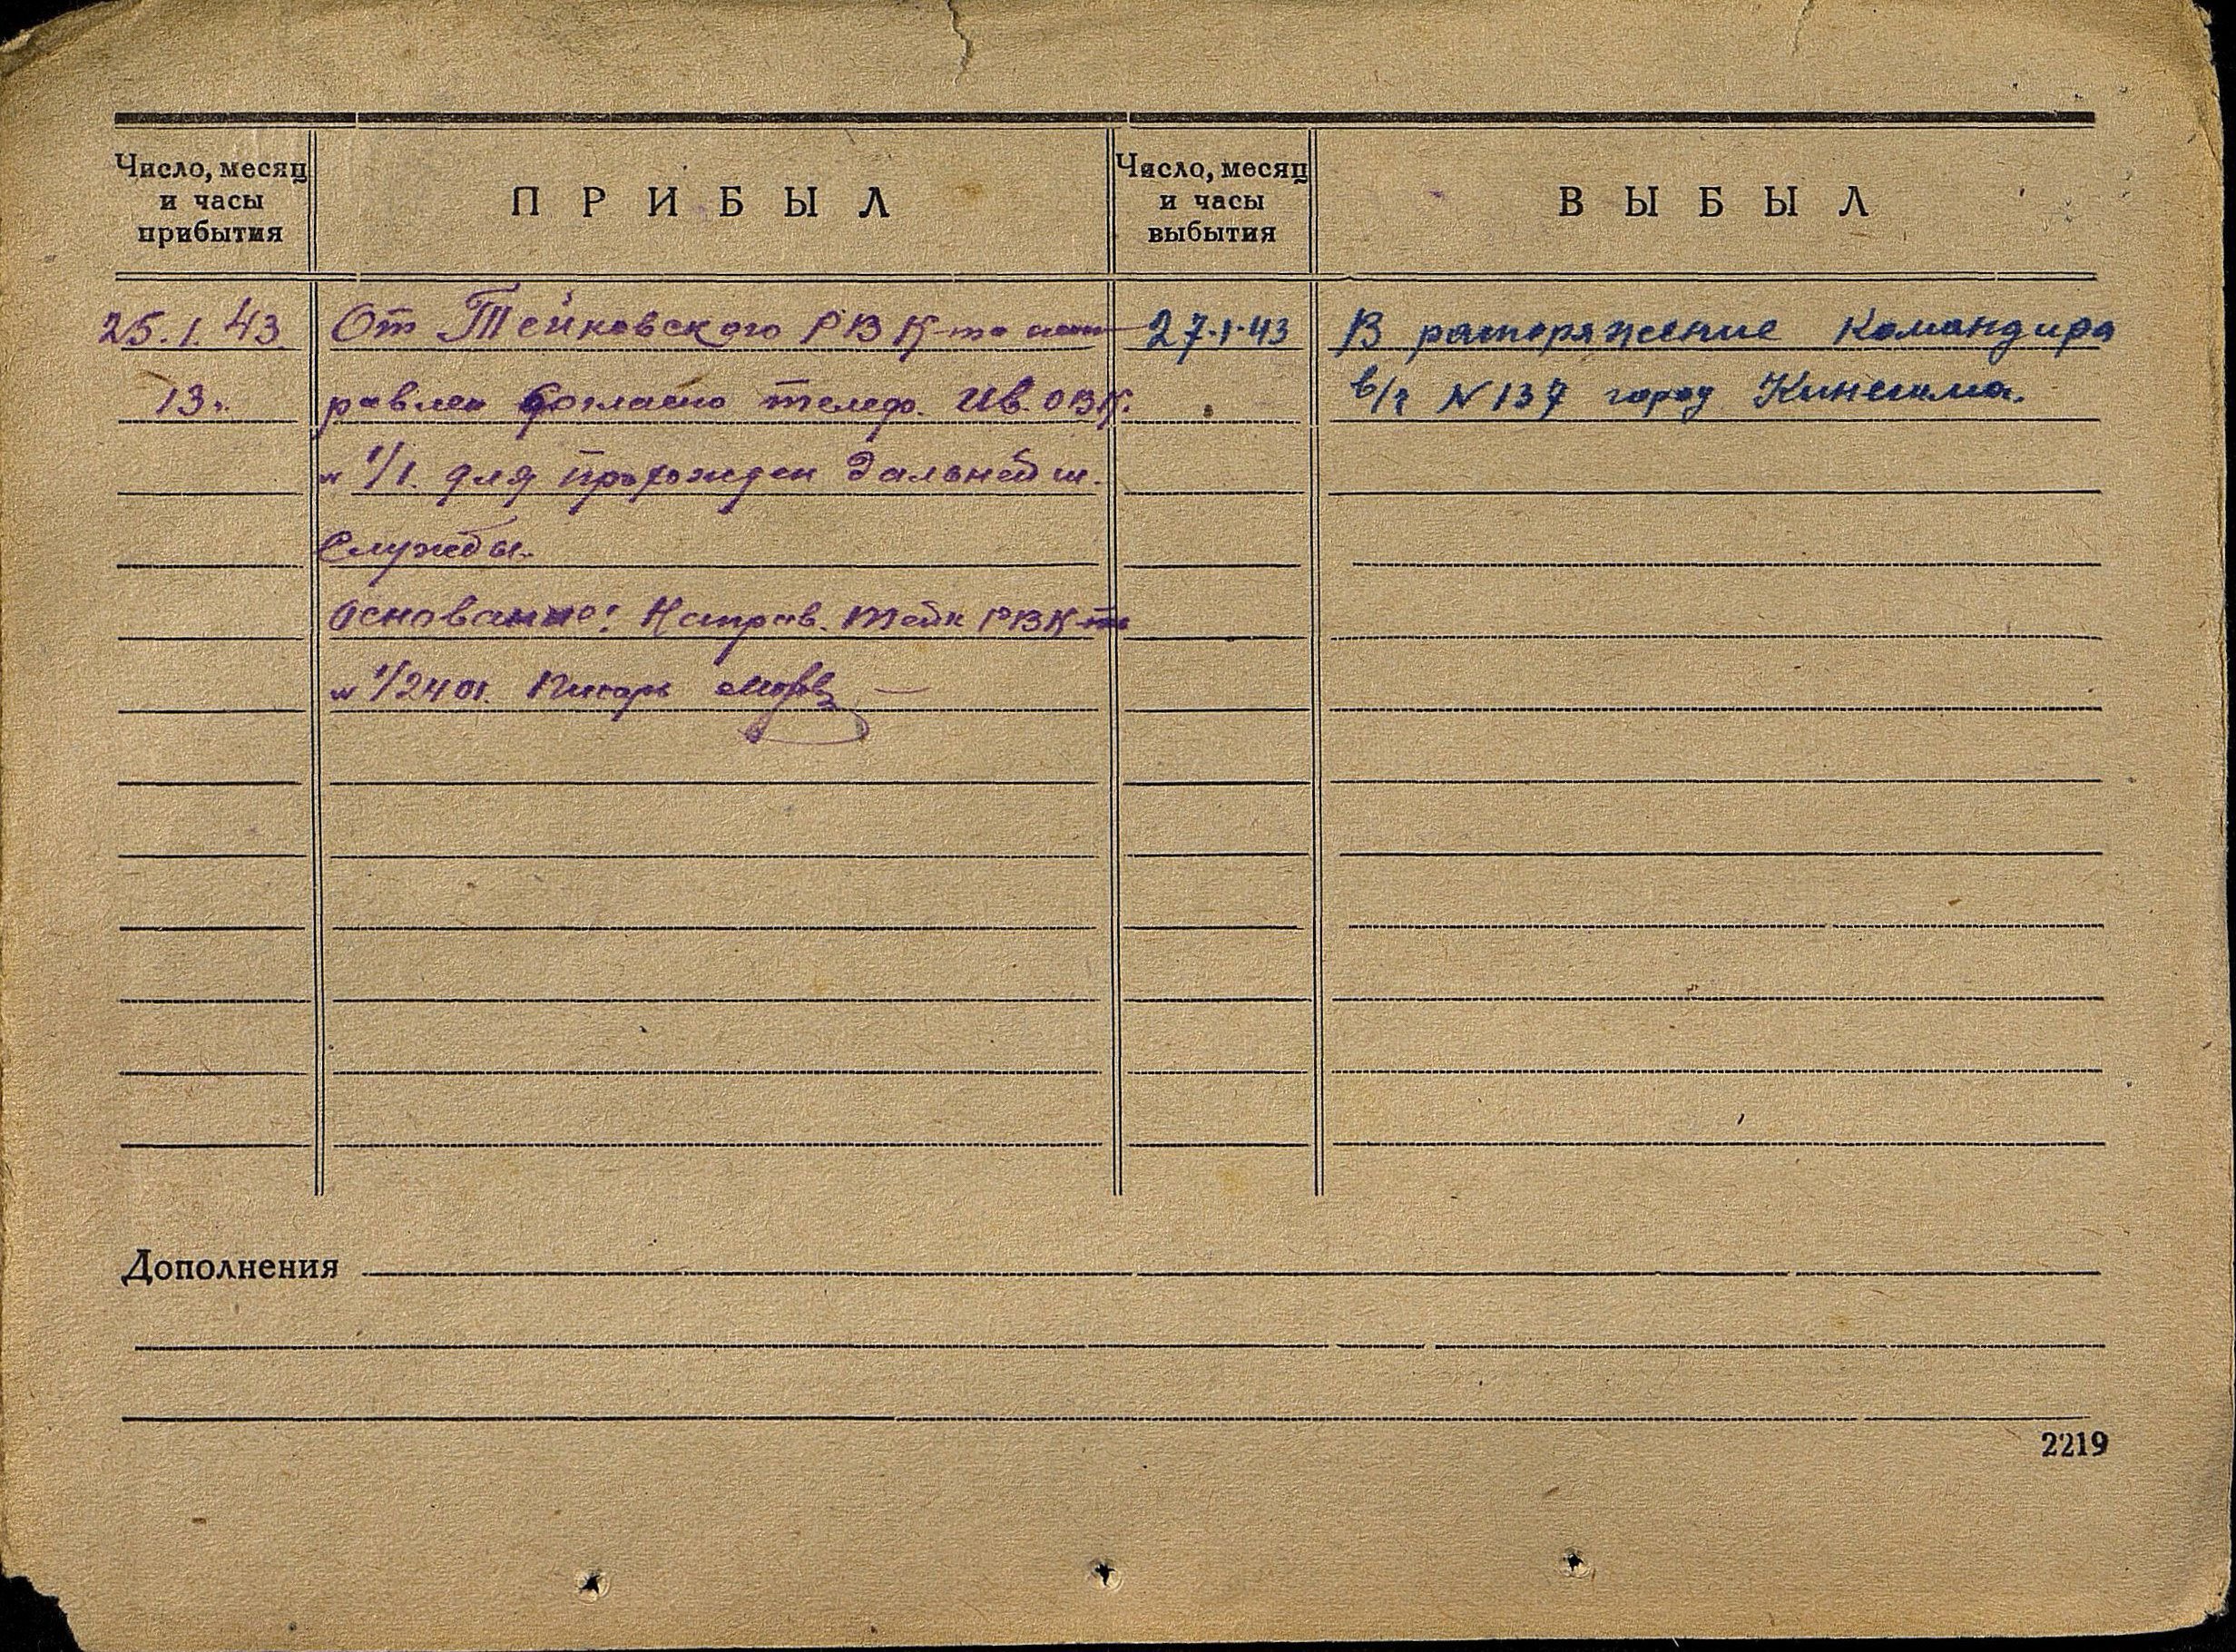 Число, месяц
и часы
прибытия
ПРИБЫЛ
Число, месяц
и часы
выбытия
ВЫБЫЛ
25.1.43.
13ч.
От Тейковского РВК-та нап
равлен согласно телеф. Ив. ОВК.
№ 1/1. для прохожден дальнейш.
Службы.
Основание: Направ. Тейк РВК-та
№ 1/2401. Писарь
27.1.43
В распоряжение Командира
в/ч N 137 город Кинешма.
Дополнения
2219